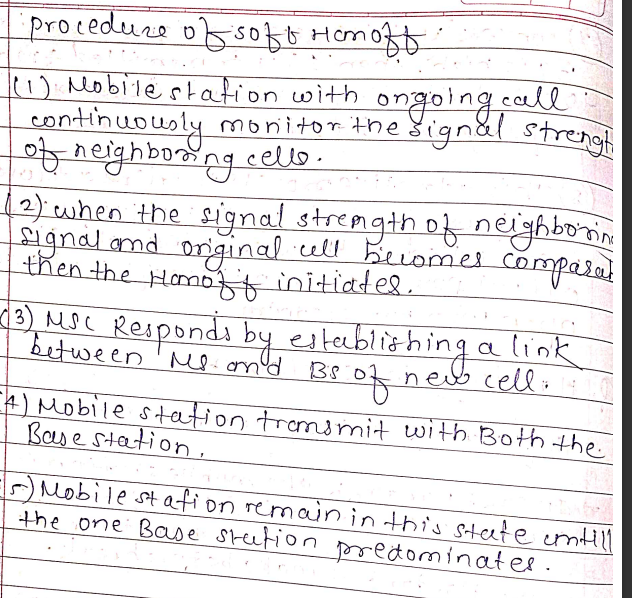 procedure of soft Hanoff
(1) Mobile station with ongoing call
continuously monitor the signal strengt
of neighboring cells.
(2) when the signal strength of neighborin
signal and original cell becomes comparab
then the Hanoff initiates.
(3) MSC Responds by establishing a link
between MS and BS of new cell.
4) Mobile station transmit with Both the
Base station.
5) Mobile station remain in this state untill
the one Base station predominates.